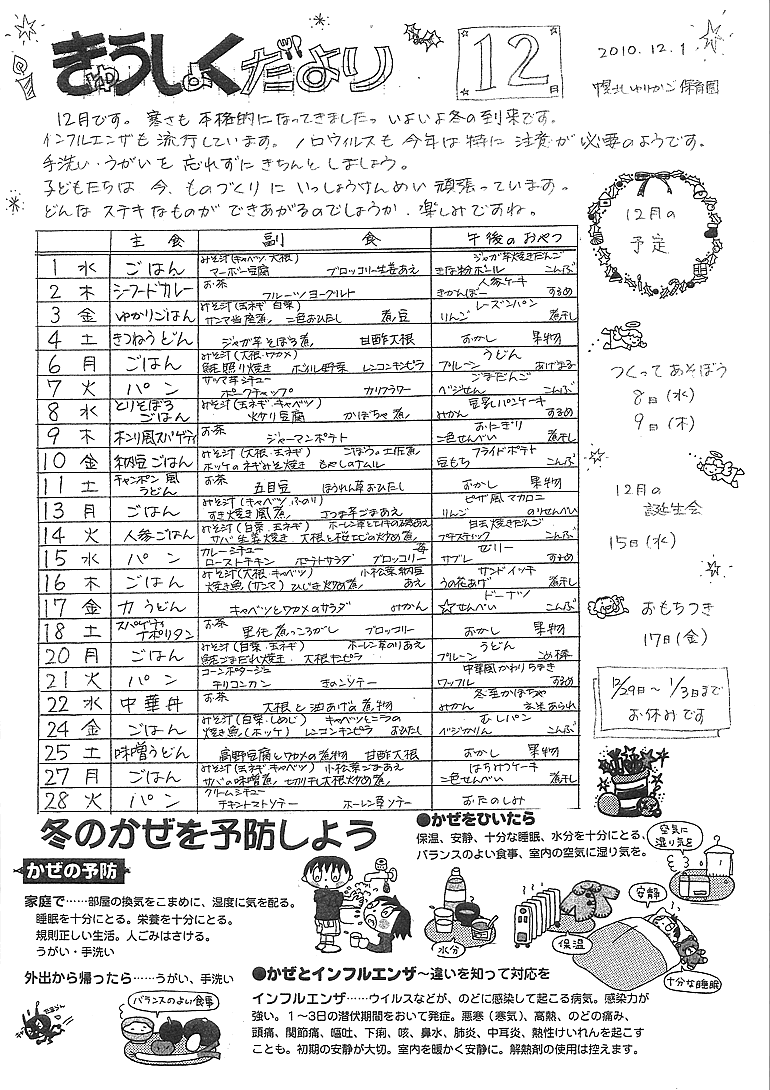 きゅうしょくだより
12月
2010.12.1
ゆりかご保育園
12月です。寒さも本格的になってきましたっ いよいよ冬の到来です。
インフルエンザも流行しています。ノロウィルスも今年は特に注意が必要のようです。
手洗い・うがいを忘れずにきちんとしましょう。
子どもたちは今、ものづくりにいっしょうけんめい頑張っています。
どんなステキなものができあがるのでしょうか。楽しみですね。
主食 副食 午後のおやつ
1 水 ごはん みそ汁(キャベツ・大根) マーボー豆腐 ブロッコリー生姜あえ ジャガ芋焼きだんご きな粉ボール こんぶ
2 木 シーフードカレー お茶 フルーツヨーグルト 人参ケーキ きかんぼー するめ
3 金 ゆかりごはん みそ汁(玉ネギ 白菜) サンマ生姜煮 二色おひたし 煮豆 レーズンパン りんご 煮干し
4 土 きつねうどん ジャガ芋そぼろ煮 甘酢大根 おかし 果物
6 月 ごはん みそ汁(大根・ワカメ) 鮭照り焼き ボイル野菜 レンコンキンピラ うどん プルーン
7 火 パン サツマ芋シチュー ポークチャップ カリフラワー ごまだんご ベジせん こんぶ
8 水 とりそぼろごはん みそ汁(玉ネギ・キャベツ) 炒り豆腐 かぼちゃ煮 豆乳パンケーキ みかん するめ
9 木 ホンリ風スパゲティ お茶 ジャーマンポテト おにぎり 二色せんべい 煮干し
10 金 納豆ごはん みそ汁(大根・玉ネギ) ごぼうの土佐煮 ホッケのネギみそ焼き もやしのナムル フライドポテト 豆もち こんぶ
11 土 チャンポン風うどん お茶 五目豆 ほうれん草おひたし おかし 果物
13 月 ごはん みそ汁(キャベツ・ふのり) すき焼き風煮 ごまあえ ピザ風マカロニ りんご のりせんべい
14 火 人参ごはん みそ汁(白菜・玉ネギ) サバ生姜焼き 大根と桜エビの炒め煮 白玉焼きだんご プチスティック こんぶ
15 水 パン カレーシチュー 苺 ローストチキン ポテトサラダ ブロッコリー ゼリー サブレ するめ
16 木 ごはん みそ汁(大根・キャベツ) 小松菜納豆あえ 焼き魚(サンマ) ひじき炒め煮 サンドイッチ うの花あげ 煮干し
17 金 力うどん キャベツとワカメのサラダ みかん ドーナツ ☆せんべい こんぶ
18 土 スパゲティナポリタン お茶 里芋煮っころがし ブロッコリー おかし 果物
20 月 ごはん みそ汁(白菜・玉ネギ) ホーレン草のりあえ 鮭ごまだれ焼き 大根キンピラ うどん プルーン
21 火 パン コーンポタージュ チリコンカン きのこソテー 中華風かわりちまき ワッフル するめ
22 水 中華丼 お茶 大根と油あげの煮物 冬至かぼちゃ みかん 玄米あられ
24 金 ごはん みそ汁(白菜・しめじ) キャベツとニラのおひたし 焼き魚(ホッケ) レンコンキンピラ むしパン ベジかりん こんぶ
25 土 味噌うどん 高野豆腐とワカメの煮物 甘酢大根 おかし 果物
27 月 ごはん みそ汁(玉ネギ キャベツ) 小松菜ごまあえ サバの味噌煮 切り干し大根炒め煮 はちみつケーキ 二色せんべい 煮干し
28 火 パン クリームシチュー チキントマトソテー ホーレン草ソテー おたのしみ
12月の
予定
つくってあそぼう
8日(水)
9日(木)
12月の
誕生会
15日(水)
おもちつき
17日(金)
12/29日～1/3日まで
お休みです
冬のかぜを予防しよう
かぜの予防
家庭で……部屋の換気をこまめに、湿度に気を配る。
睡眠を十分にとる。栄養を十分にとる。
規則正しい生活。人ごみはさける。
うがい・手洗い
外出から帰ったら……うがい、手洗い
バランスのよい食事
●かぜをひいたら
保温、安静、十分な睡眠、水分を十分にとる、
バランスのよい食事、室内の空気に湿り気を。
空気に湿り気を
安静
水分
保温
十分な睡眠
●かぜとインフルエンザ～違いを知って対応を
インフルエンザ……ウイルスなどが、のどに感染して起こる病気。感染力が
強い。1～3日の潜伏期間をおいて発症。悪寒（寒気）、高熱、のどの痛み、
頭痛、関節痛、嘔吐、下痢、咳、鼻水、肺炎、中耳炎、熱性けいれんを起こす
ことも。初期の安静が大切。室内を暖かく安静に。解熱剤の使用は控えます。